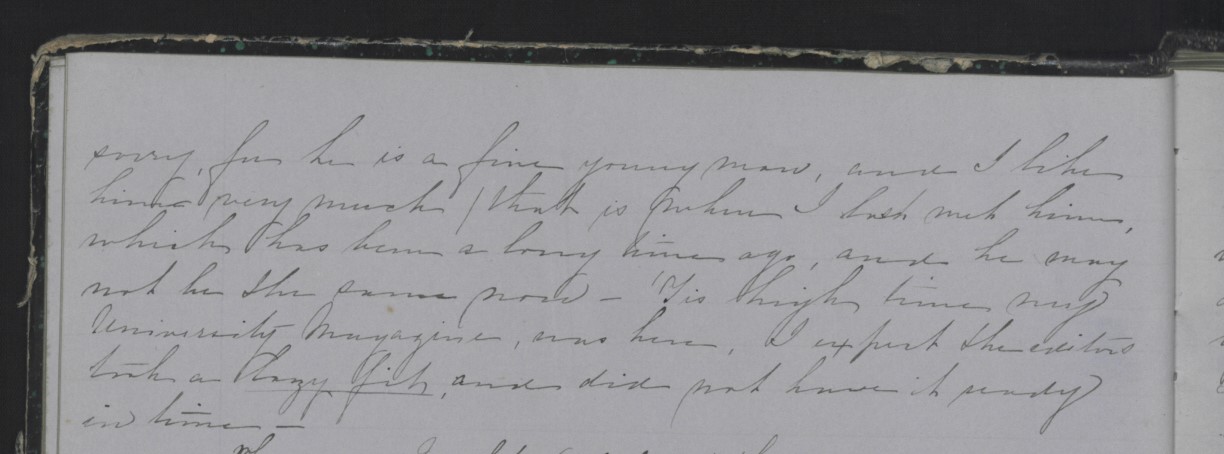 sorry, for he is a fine young man, and I like
him very much (that is when I last met him,
which has been a long time ago, and he may
not be the same now - 'Tis high time my
University Magazine, was here, I expect the editors
took a lazy fit, and did not have it ready
in time -